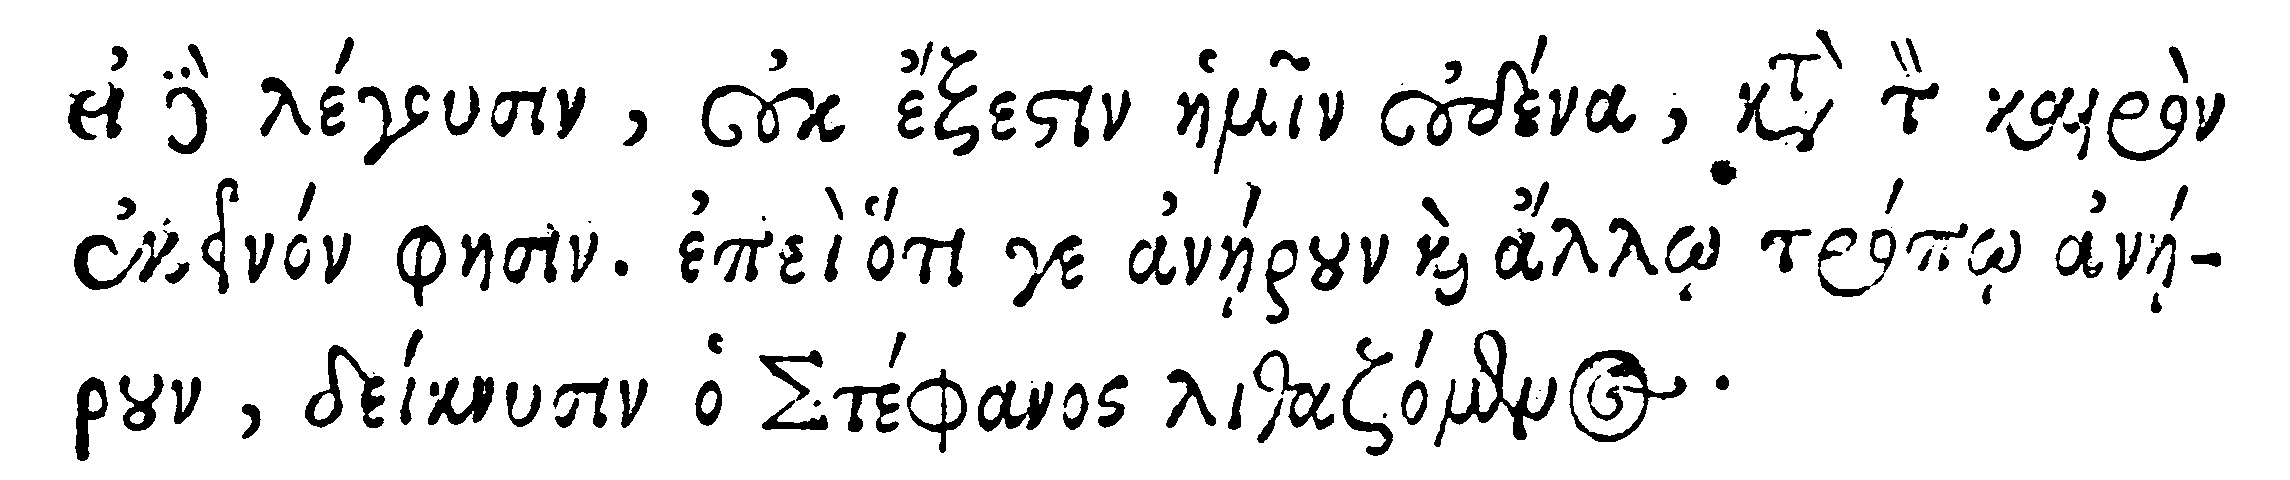 εἰ δὲ λέγουσιν, οὐκ ἔξεστιν ἡμῖν οὐδένα, κατὰ τὸν καιρὸν
ἐκεῖνόν φησιν. ἐπεὶ ὅτι γε ἀνῄρουν καὶ ἄλλῳ τρόπῳ ἀνῄ-
ρουν, δείκνυσιν ὁ Στέφανος λιθαζόμενος.